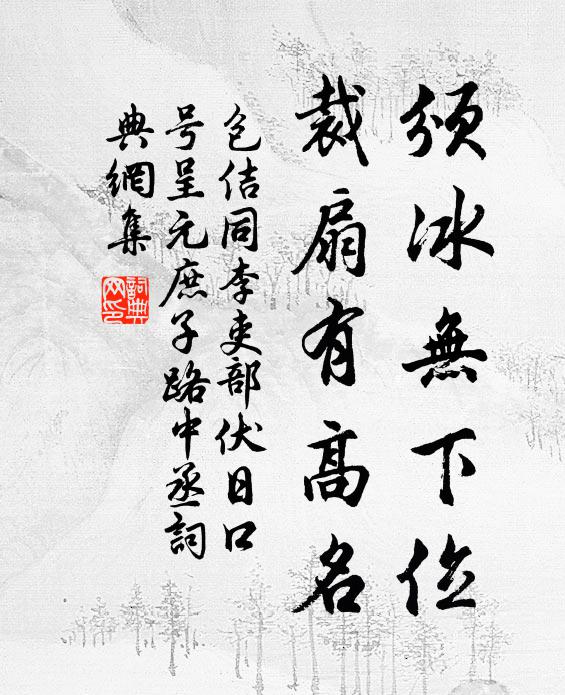 颁冰無下位
裁扇有高名
包佶同李吏部伏日口
号呈元庶子路中丞詞
典網集
詞典
网印